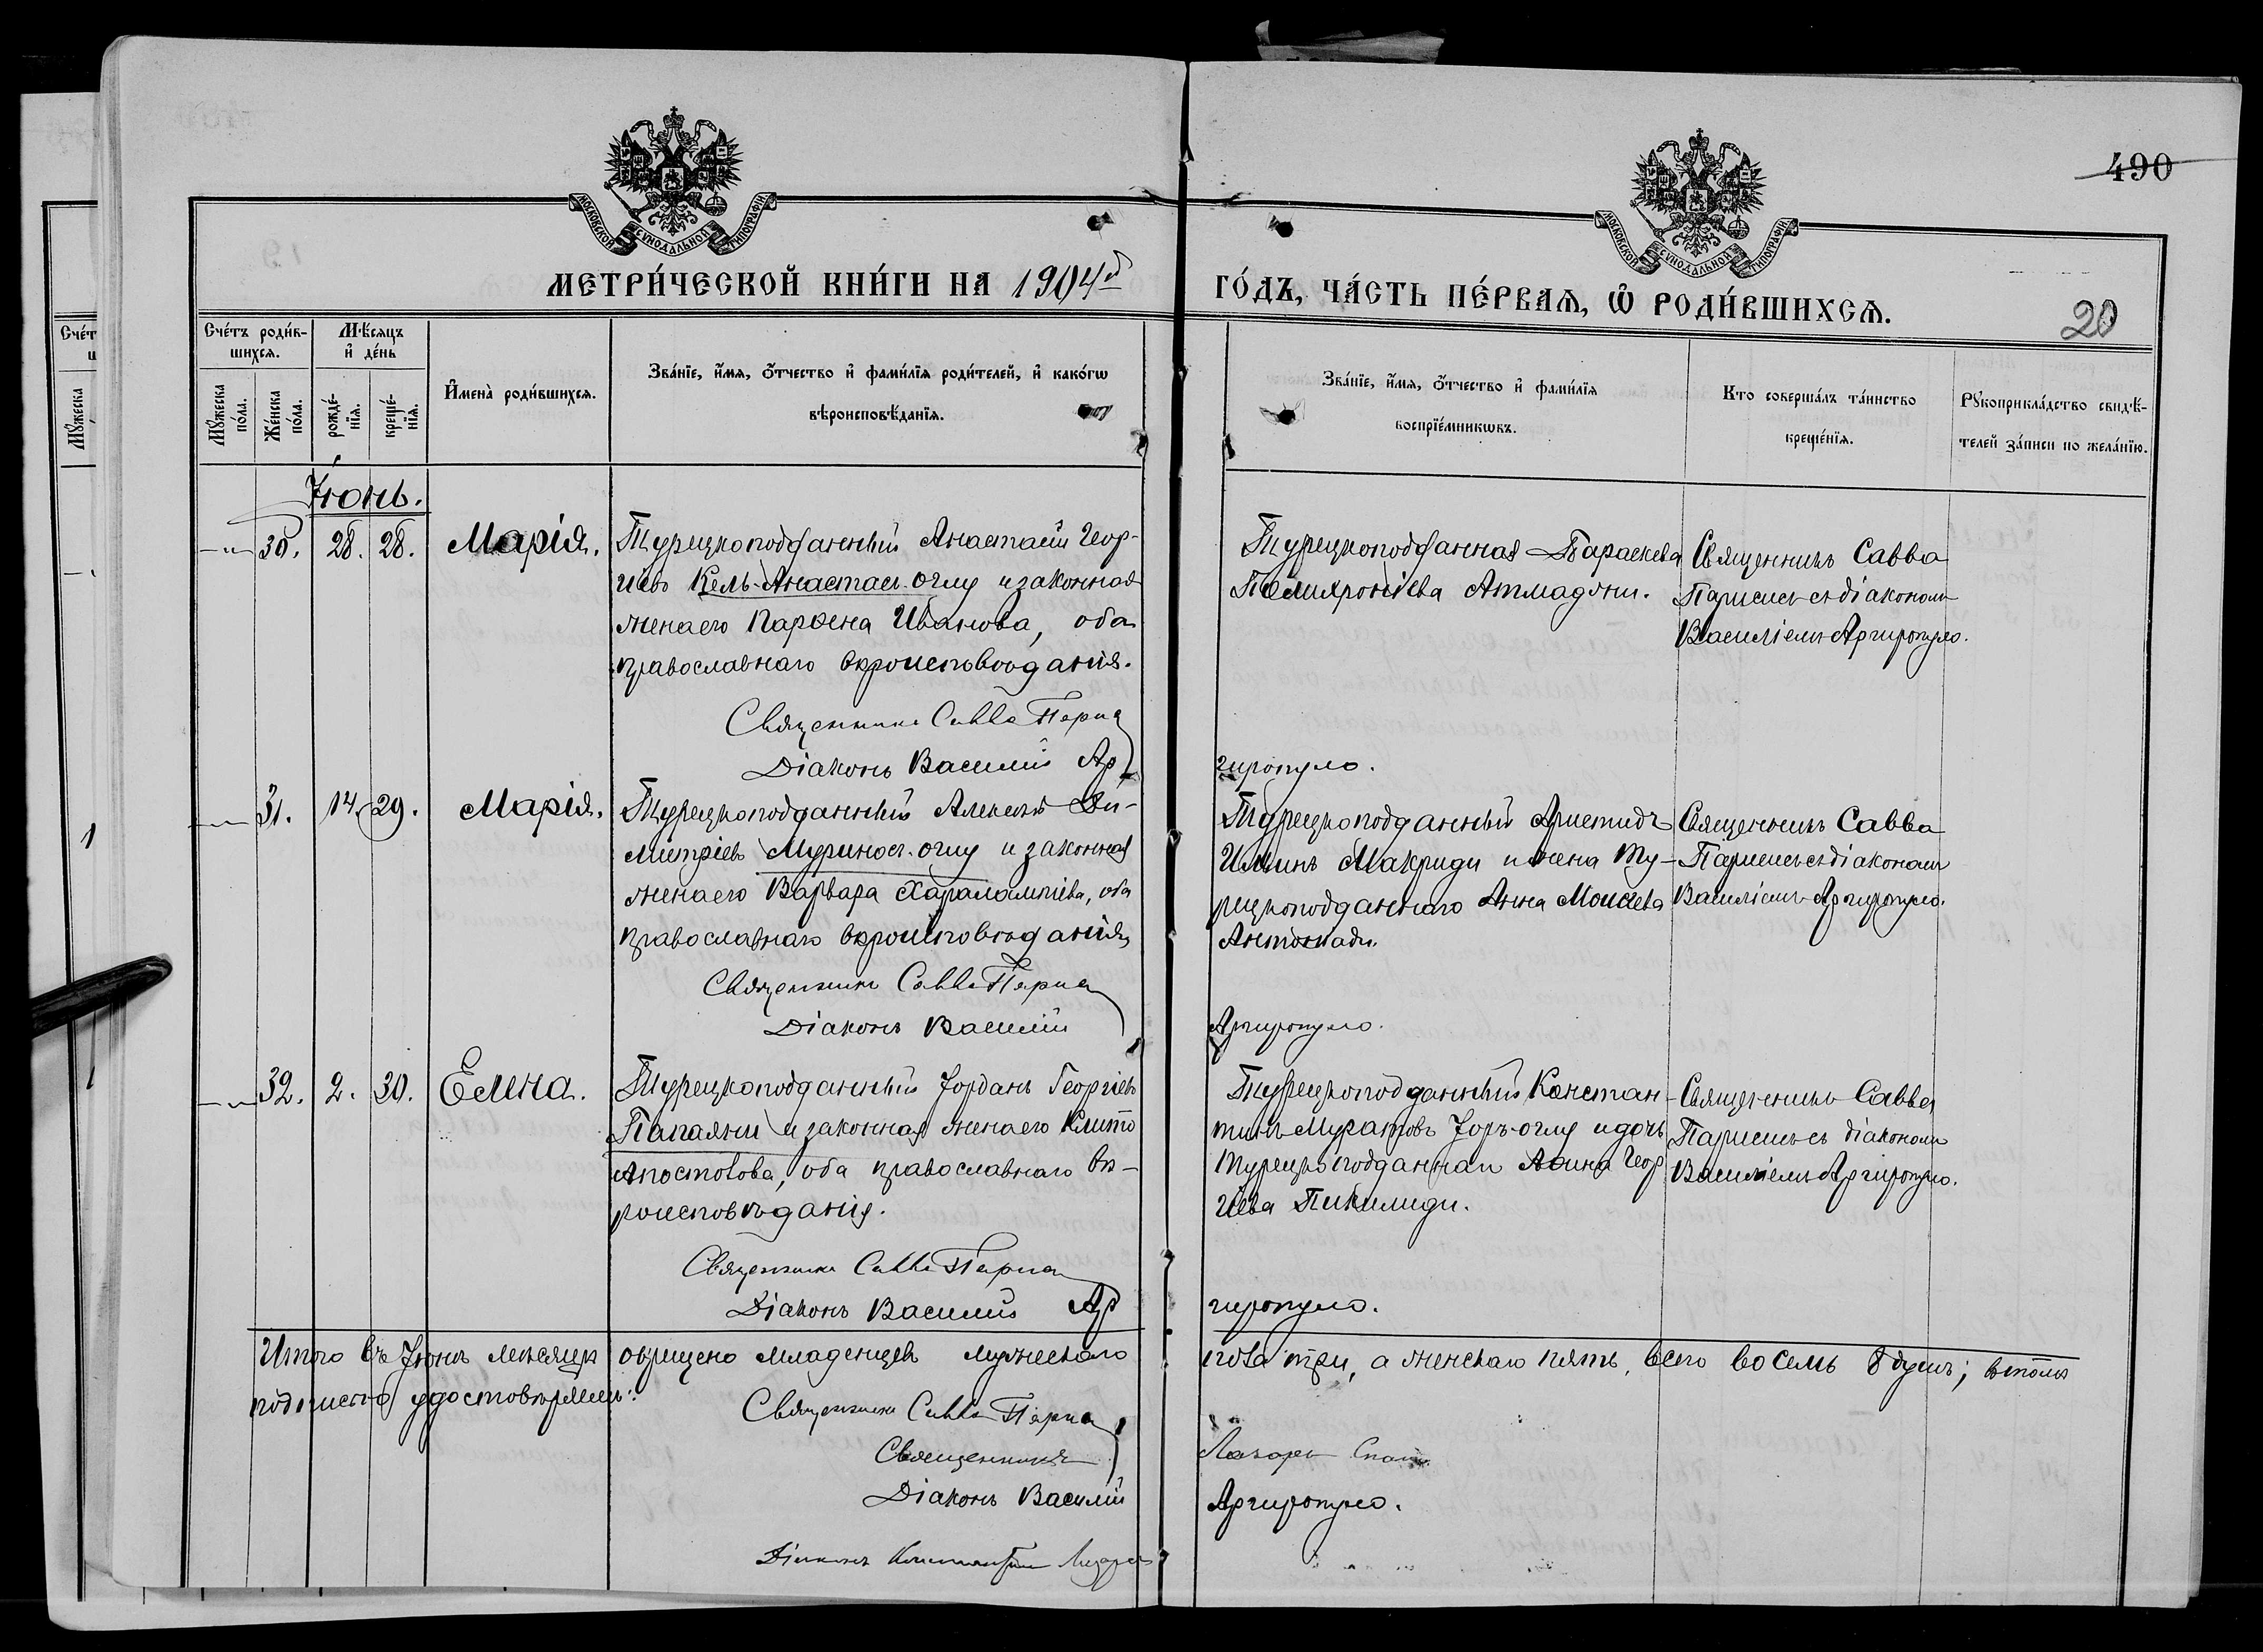 490
МОСКОВСКОЙ СУНОДАЛЬНОЙ ТИПОГРАФІИ
МОСКОВСКОЙ СУНОДАЛЬНОЙ ТИПОГРАФІИ
МЕТРИ́ЧЕСКОЙ КНИ́ГИ НА 1904й
ГО́ДЪ, ЧА́СТЬ ПЕ́РВАЯ, Ѡ РОДИ́ВШИХСЯ.
20
Сче́тъ роди́в-
шихся.
Мѣ́сяцъ
и҆ де́нь
Мꙋ́жеска
по́ла.
Же́нска
по́ла.
рожде́-
нїя.
креще́-
нїя.
И҆мена̀ роди́вшихся.
Зва́нїе, и҆́мя, ѻ҆́тчество и҆ фами́лїя роди́телей, и҆ како́гѡ
вѣроисповѣ́данїя.
Зва́нїе, и҆́мя, ѻ҆́тчество и҆ фами́лїя
воспрїе́мникѡвъ.
Кто соверша́лъ та́инство
креще́нїя.
Рꙋкоприкла́дство свидѣ́-
телей за́писи по жела́нїю.
Сче́т
Мꙋ́жеска
1
Іюнь.
30. 28. 28. Марія.
Турецкоподданный Анастасій Геор-
гіевъ Кель-Анастас-оглу и законная
жена его Парѳена Иванова, оба
православнаго вѣроисповѣданія.
Священникъ Савва Париса
Діаконъ Василій Ар
Турецкоподданная Параскева
Полихроніева Атмаджи.
гиропуло.
Священникъ Савва
Парисисъ съ діакономъ
Василіемъ Аргиропуло.
31. 14. 29. Марія.
Турецкоподданный Алексѣй Ди-
митріевъ Муринос-оглу и законная
жена его Варвара Харалампіева, оба
православнаго вѣроисповѣданія
Священникъ Савва Париса
Діаконъ Василій
Турецкоподданный Аристидъ
Ильинъ Макриди и жена ту-
рецкоподданнаго Анна Моисеева
Антониади.
Аргиропуло.
Священникъ Савва
Парисисъ съ діакономъ
Василіемъ Аргиропуло.
32. 2. 30. Елена.
Турецкоподданный Іорданъ Георгіевъ
Папаяни и законная жена его Клито
Апостолова, оба православнаго вѣ-
роисповѣданія.
Священникъ Савва Париса
Діаконъ Василій Ар
Турецкоподданный Констан-
тинъ Муратовъ Іоръ-оглу и дочь
турецкоподданнаго Аѳина Геор
гіева Пикилиди.
гиропуло.
Священникъ Савва
Парисисъ съ діакономъ
Василіемъ Аргиропуло.
Итого въ Іюнѣ мѣсяцѣ окрещено младенцевъ мужескаго пола три, а женскаго пять, всего восемь 8 душъ; въ томъ
подписью удостовѣряемъ:
Священникъ Савва Париса
Священникъ Лазарь
Діаконъ Василій Аргиропуло.
Діаконъ Константинъ